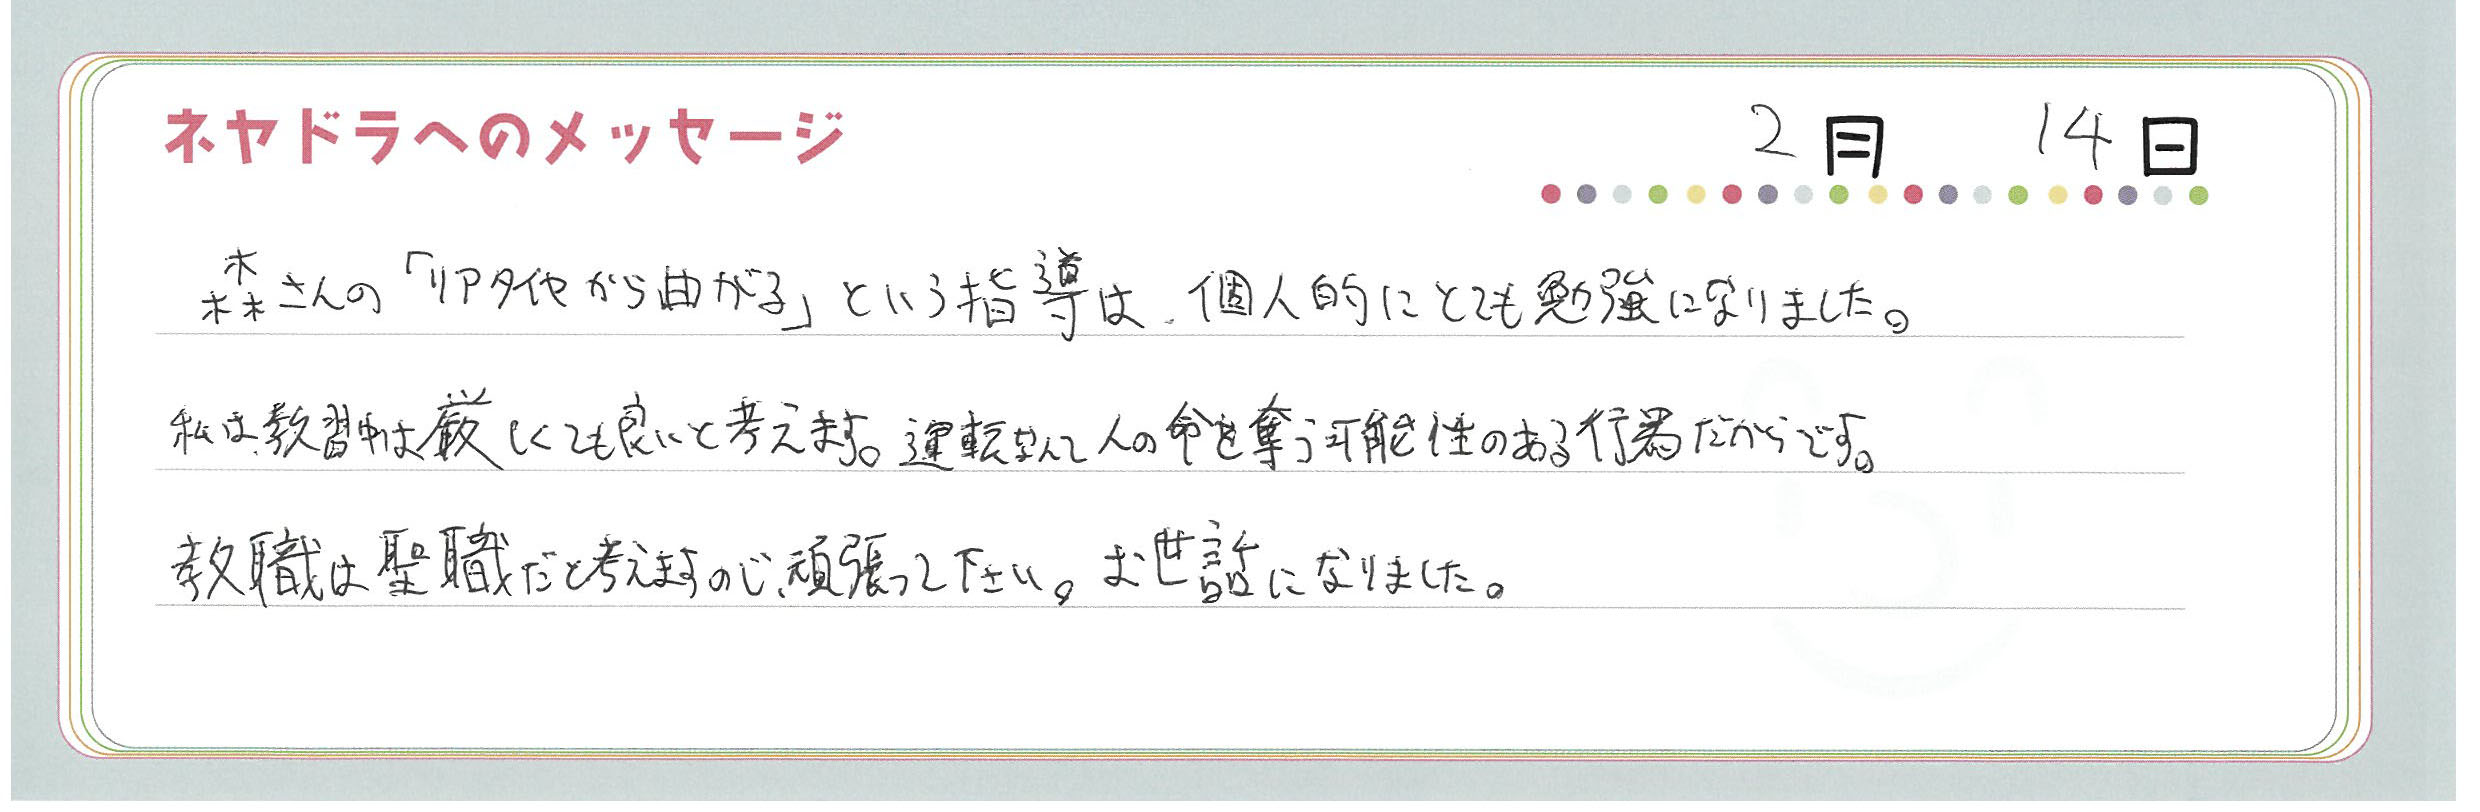 ネヤドラへのメッセージ
2月 14日
森さんの「リアタイヤから曲がる」という指導は、個人的にとても勉強になりました。
私は、教習中は厳しくても良いと考えます。運転なんて人の命を奪う可能性のある行為だからです。
教職は聖職だと考えますので、頑張って下さい。お世話になりました。